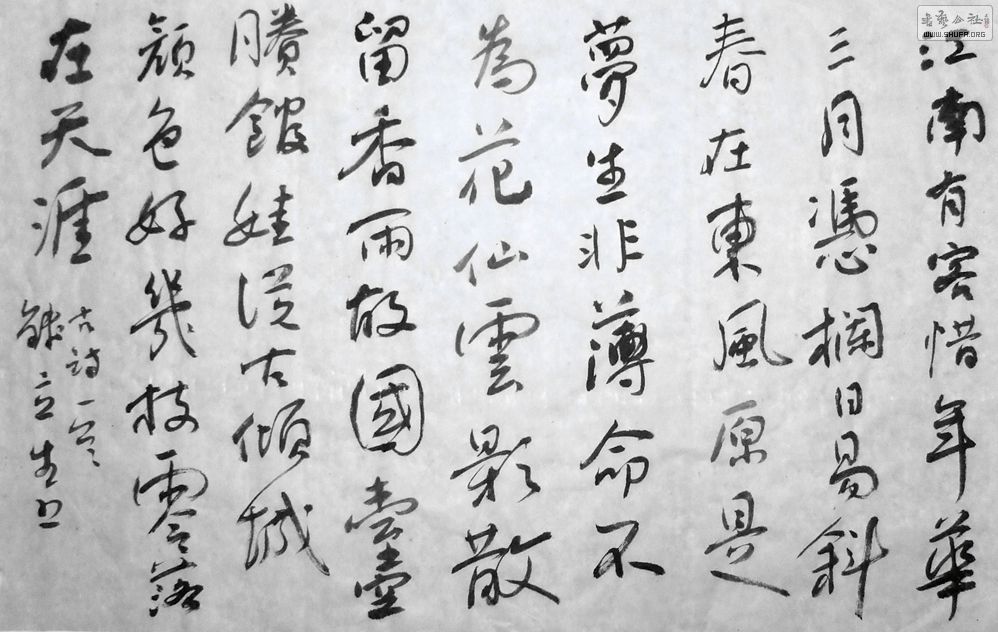 江南有客惜年華
三月憑欄日易斜
春在東風原是
夢生非薄命不
為花仙雲影散
留香雨故國臺空
賸館娃從古傾城
顏色好幾枝零落
在天涯
古詩一首
錢立生上
書藝公社
WWW.SHUFA.ORG